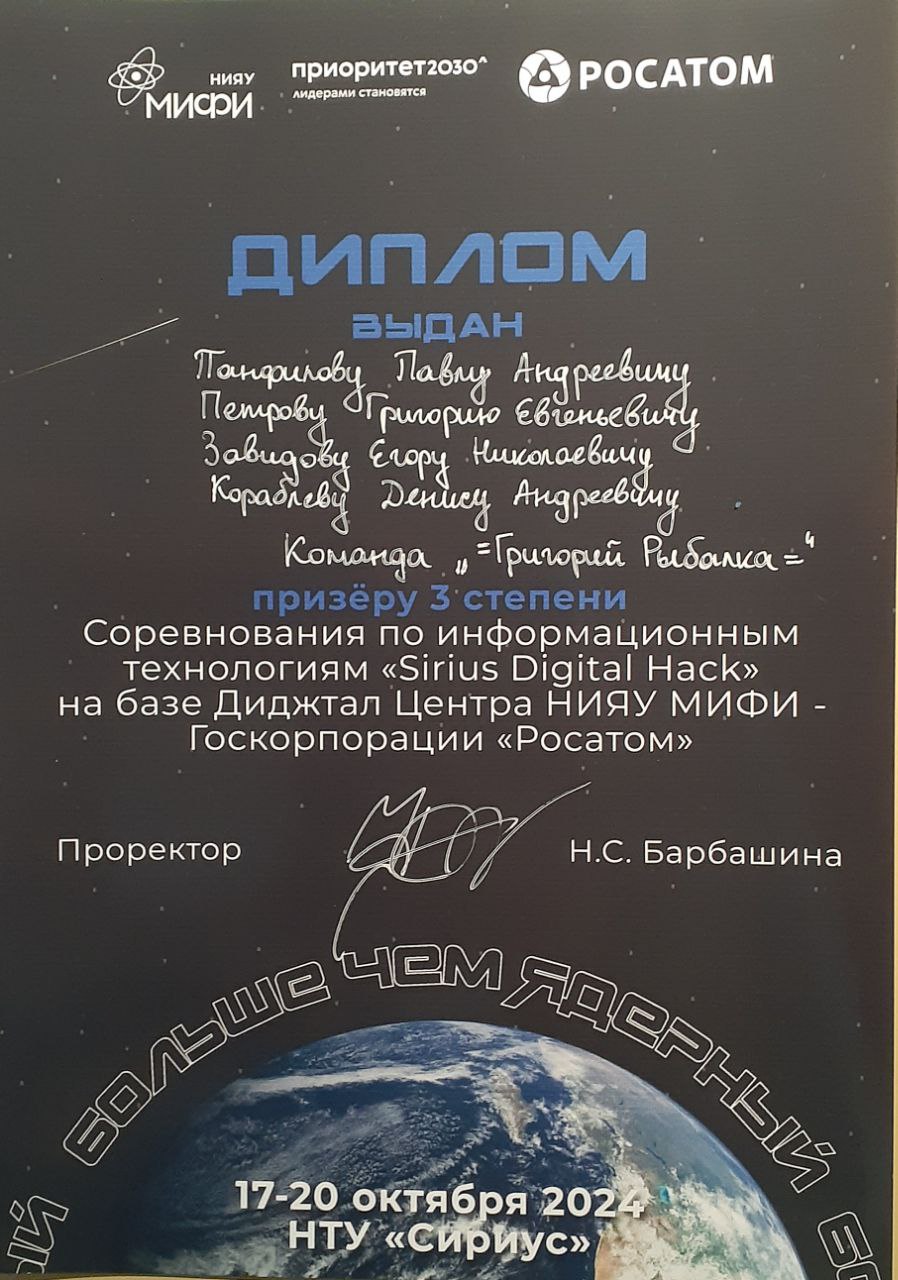 НИЯУ
МИФИ
приоритет2030^
лидерами становятся
РОСАТОМ
ДИПЛОМ
ВЫДАН
Панфилову Павлу Андреевичу
Петрову Григорию Евгеньевичу
Завидову Егору Николаевичу
Кораблеву Денису Андреевичу
Команда „=Григорий Рыбалка=“
призёру 3 степени
Соревнования по информационным
технологиям «Sirius Digital Hack»
на базе Диджтал Центра НИЯУ МИФИ -
Госкорпорации «Росатом»
Проректор
Н.С. Барбашина
БОЛЬШЕ ЧЕМ ЯДЕРНЫЙ
17-20 октября 2024
НТУ «Сириус»